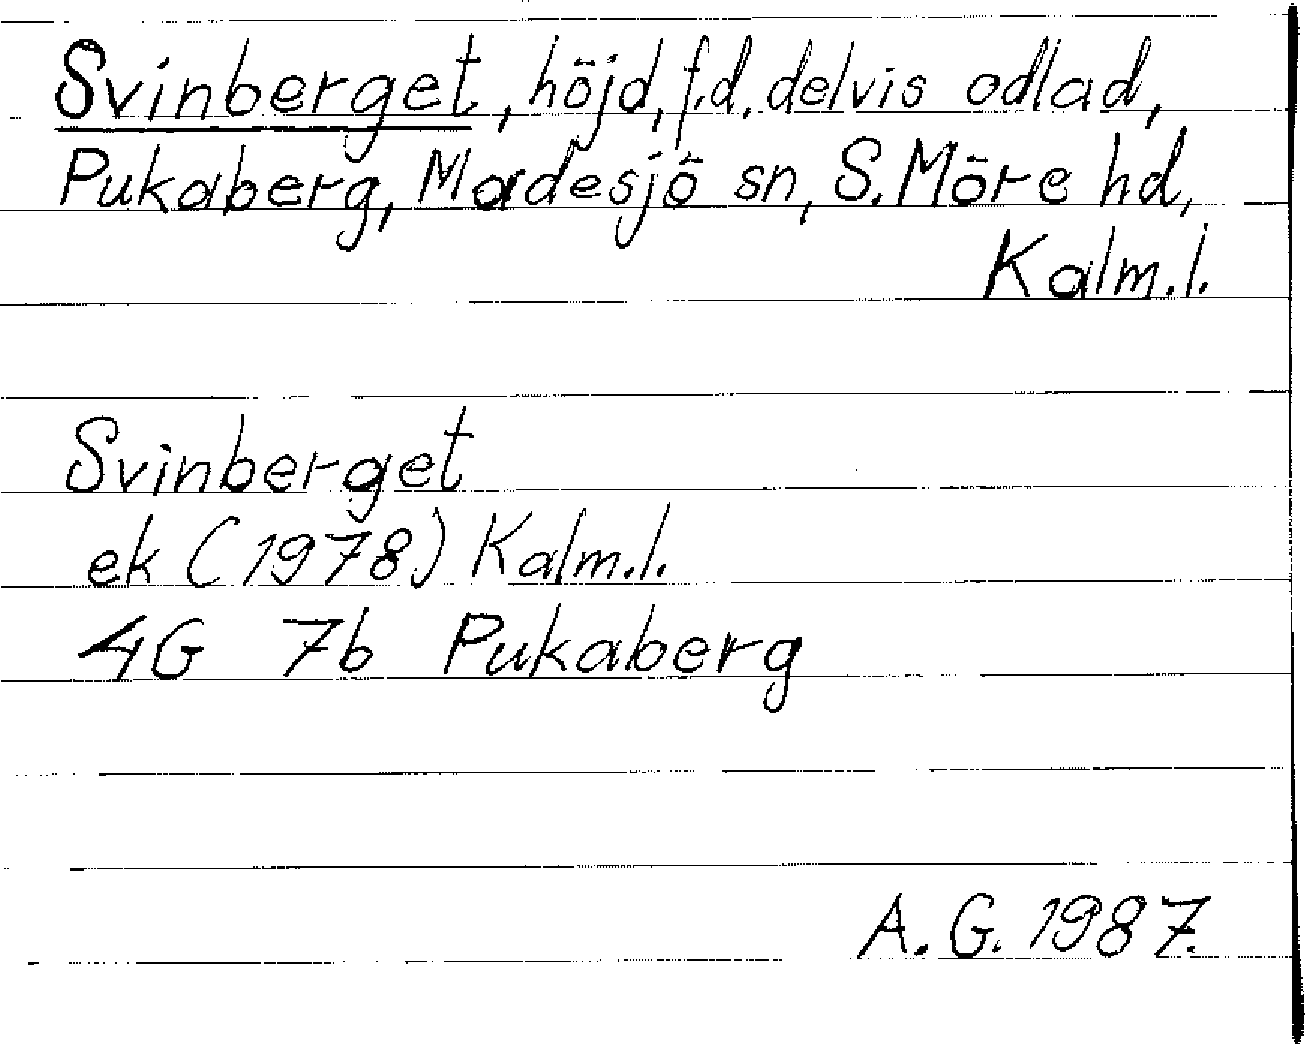 Svinberget, höjd, f.d. delvis odlad,
Pukaberg, Madesjö sn, S. Möre hd,
Kalm.l.
Svinberget
ek (1978) Kalm.l.
4G 7b Pukaberg
A. G. 1987.